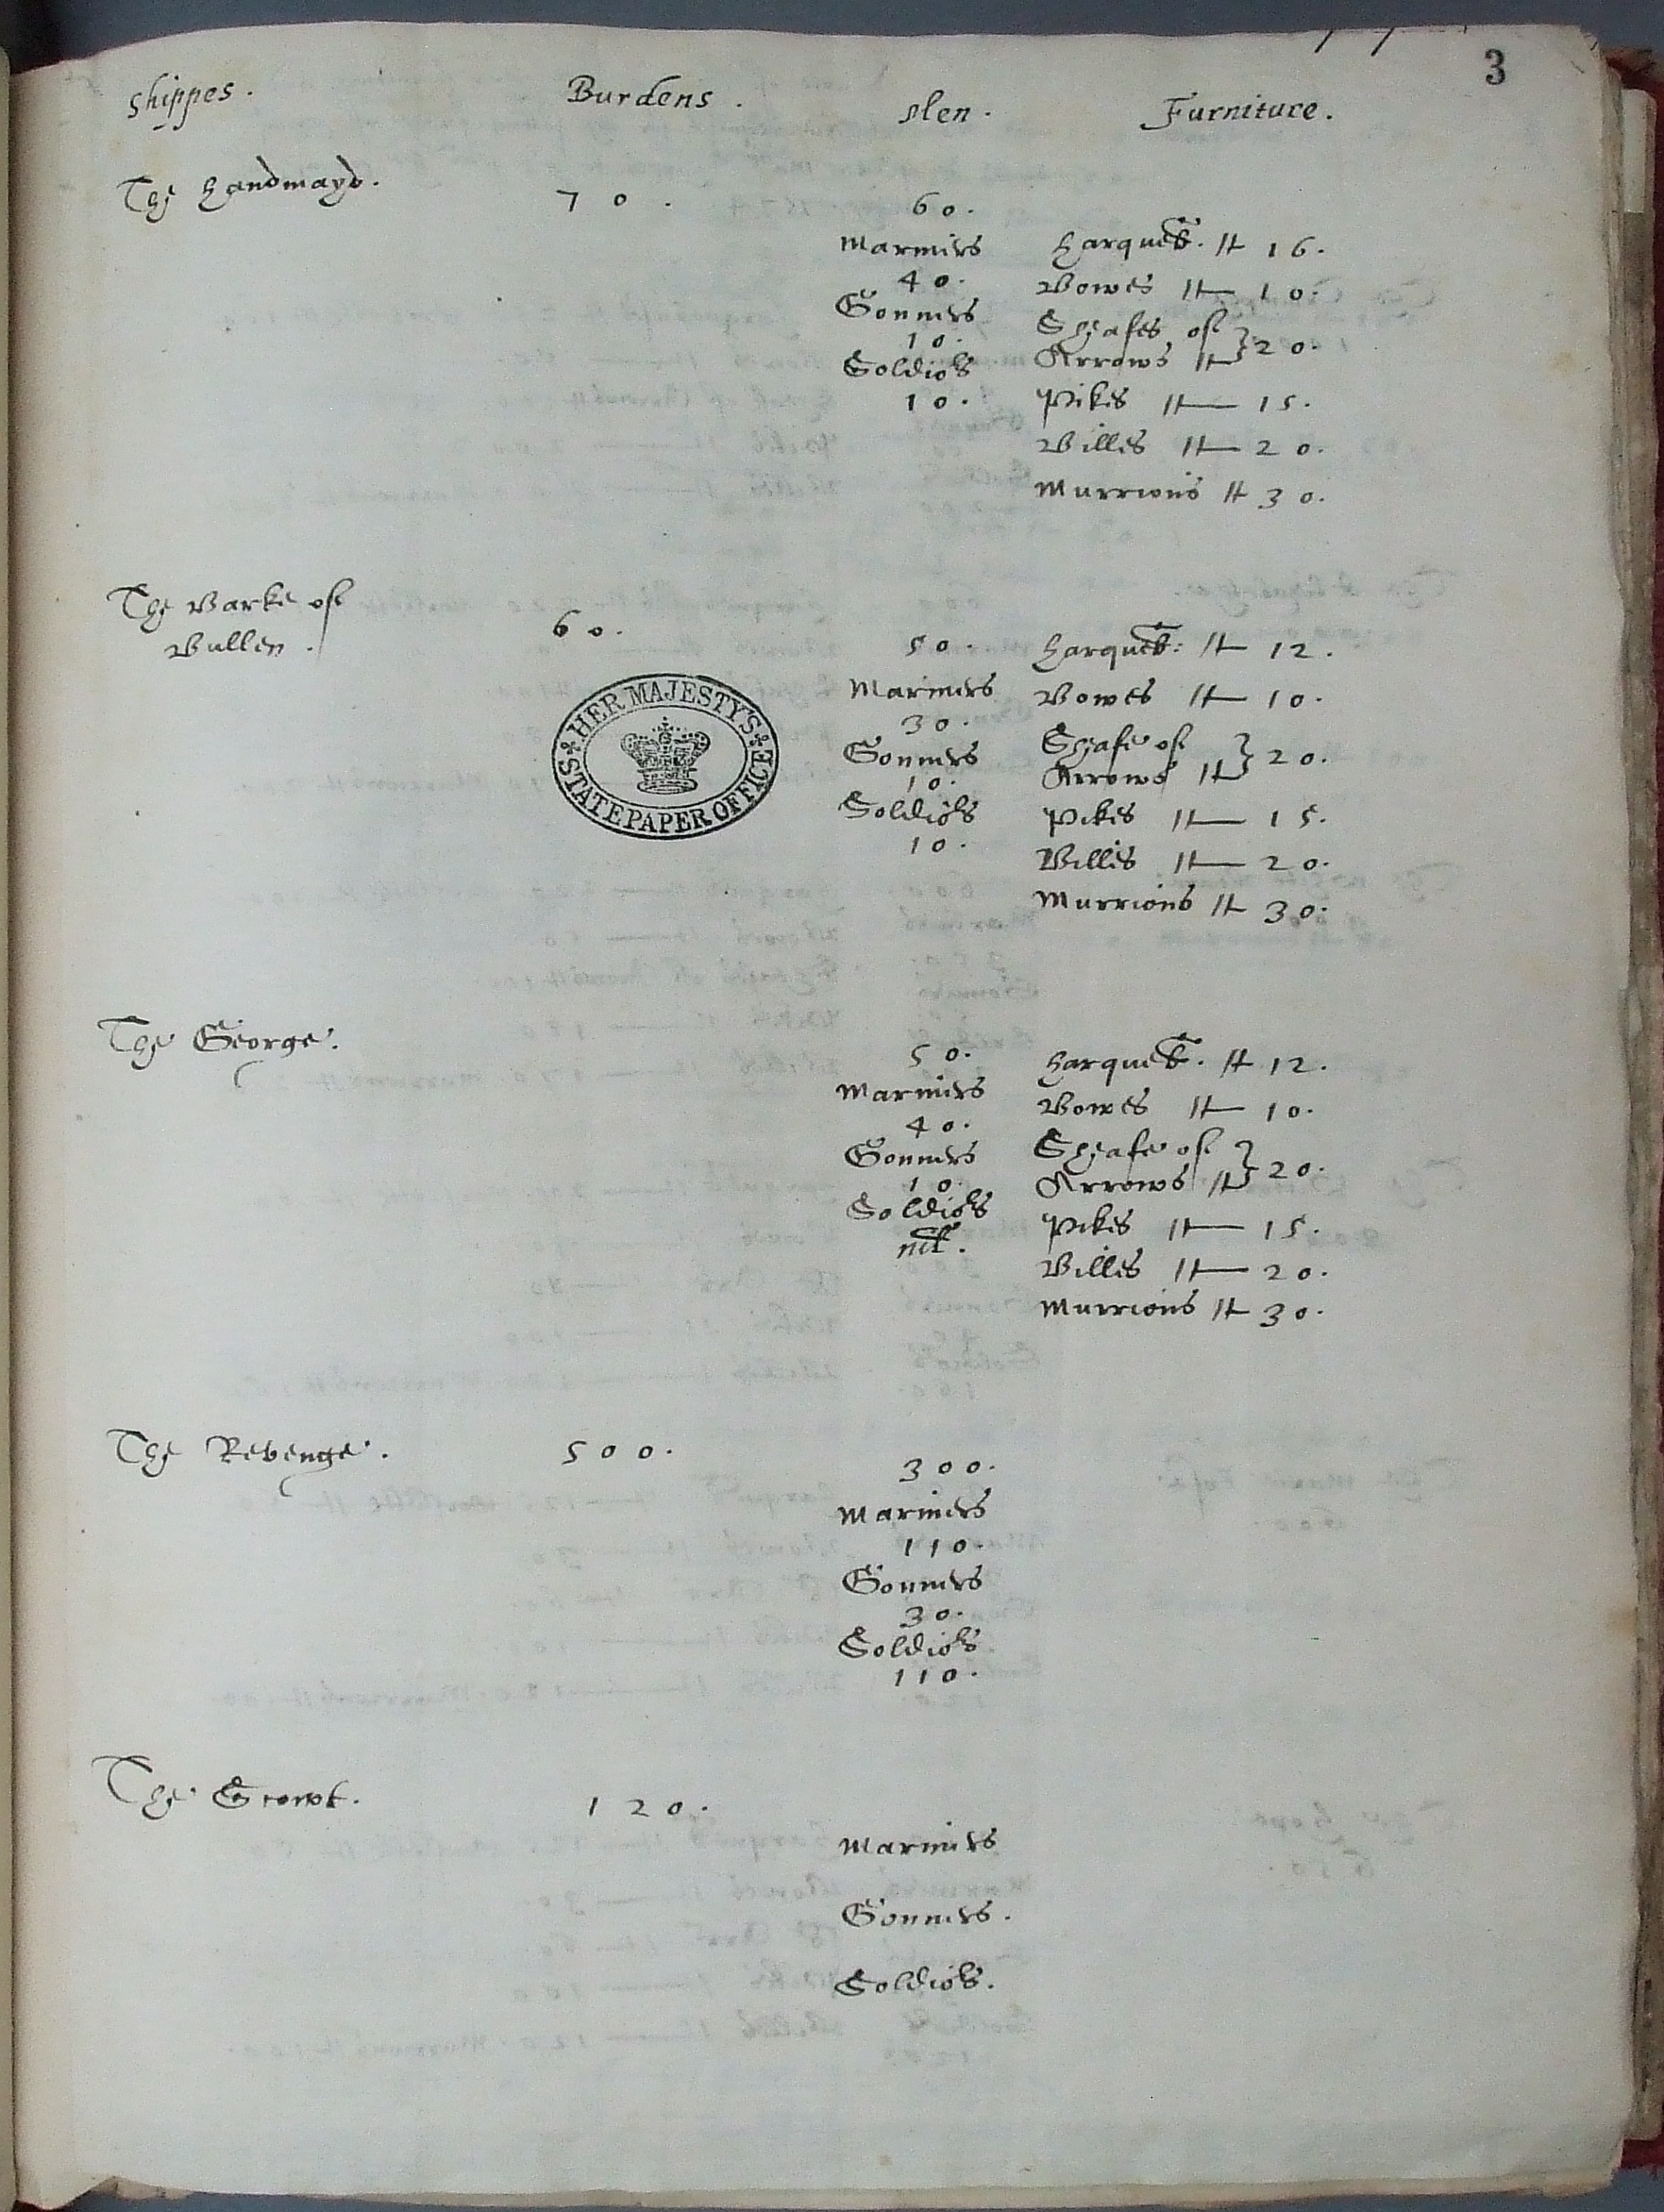 3
Shippes. Burdens. Men. Furniture.
The Handmayd. 70. 60.
Marriners Harqueb. 16.
40. Bowes 10.
Gonners Sheafes of
10. Arrows } 20.
Soldiors
10. Pikes 15.
Billes 20.
Murrions 30.
The Barke of
Bullen. 60. 50. Harqueb: 12.
Mariners Bowes 10.
30.
Gonners Sheafe of
10. Arrows } 20.
Soldiors Pikes 15.
10. Billes 20.
Murrions 30.
HER MAJESTY'S STATE PAPER OFFICE
The George. 50. Harqueb. 12.
Mariners Bowes 10.
40.
Gonners Sheafe of
10. Arrows } 20.
Soldiors Pikes 15.
nil. Billes 20.
Murrions 30.
The Revenge. 500. 300.
Mariners
110.
Gonners
30.
Soldiors
110.
The 120.
Mariners
Gonners.
Soldiors.